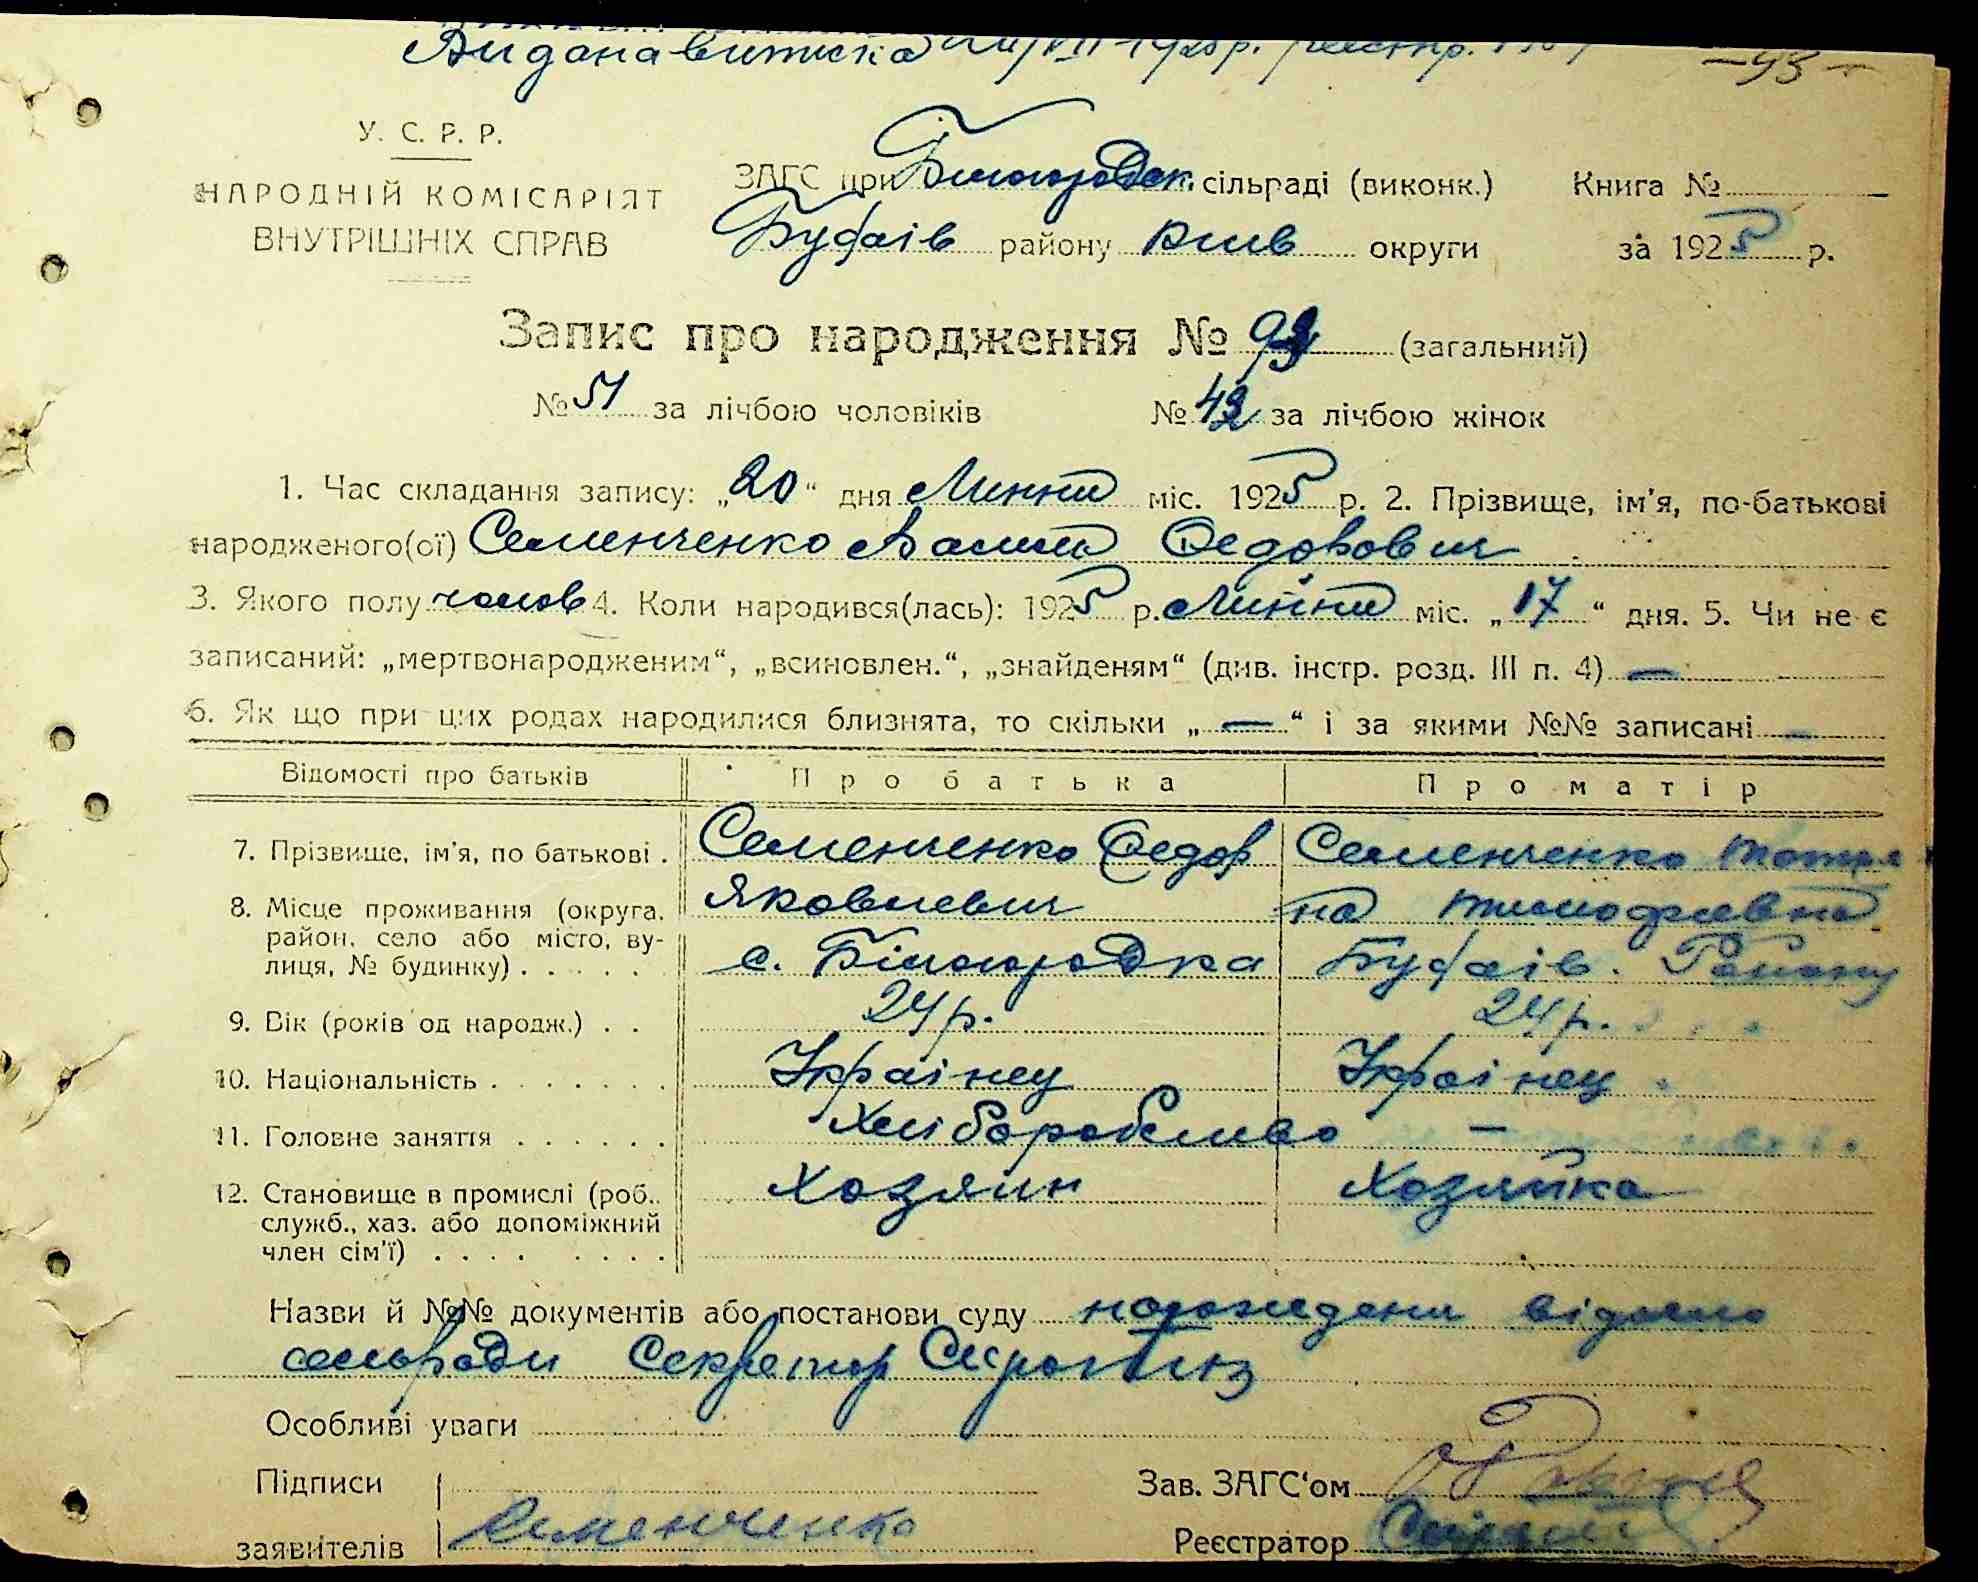 Видана витиска
— 93 —
У. С. Р. Р.
НАРОДНІЙ КОМІСАРІЯТ
ВНУТРІШНІХ СПРАВ
ЗАГС при Білогородск. сільраді (виконк.) Книга №
Будаів району Київ округи за 1925 р.
Запис про народження № 93 (загальний)
№ 51 за лічбою чоловіків № 42 за лічбою жінок
1. Час складання запису: „20“ дня Липня міс. 1925 р. 2. Прізвище, ім'я, по-батькові
народженого(ої) Семенченко Федорович
3. Якого полу чолов 4. Коли народився(лась): 1925 р. Липня міс. „17“ дня. 5. Чи не є
записаний: „мертвонародженим“, „всиновлен.“, „знайденям“ (див. інстр. розд. III п. 4) —
6. Як що при цих родах народилися близнята, то скільки „—“ і за якими №№ записані —
Відомості про батьків Про батька Про матір
7. Прізвище, ім'я, по батькові . Семенченко Федор Семенченко Татья
8. Місце проживання (округа, Яковлевич на Тимофиевна
район, село або місто, ву-
лиця, № будинку) . . . . . с. Білогородка Будаів. Району
9. Вік (років од народж.) . . 24 р. 24 р.
10. Національність . . . . . . . Українец Українец
11. Головне заняття . . . . . . Хліборобство —
12. Становище в промислі (роб., Хозяин Хозяйка
служб., хаз. або допоміжний
член сім'ї) . . . . . . . .
Назви й №№ документів або постанови суду народження відомо
сельради Секретар
Особливі уваги
Підписи Зав. ЗАГС‘ом
заявителів Семенченко Реєстратор